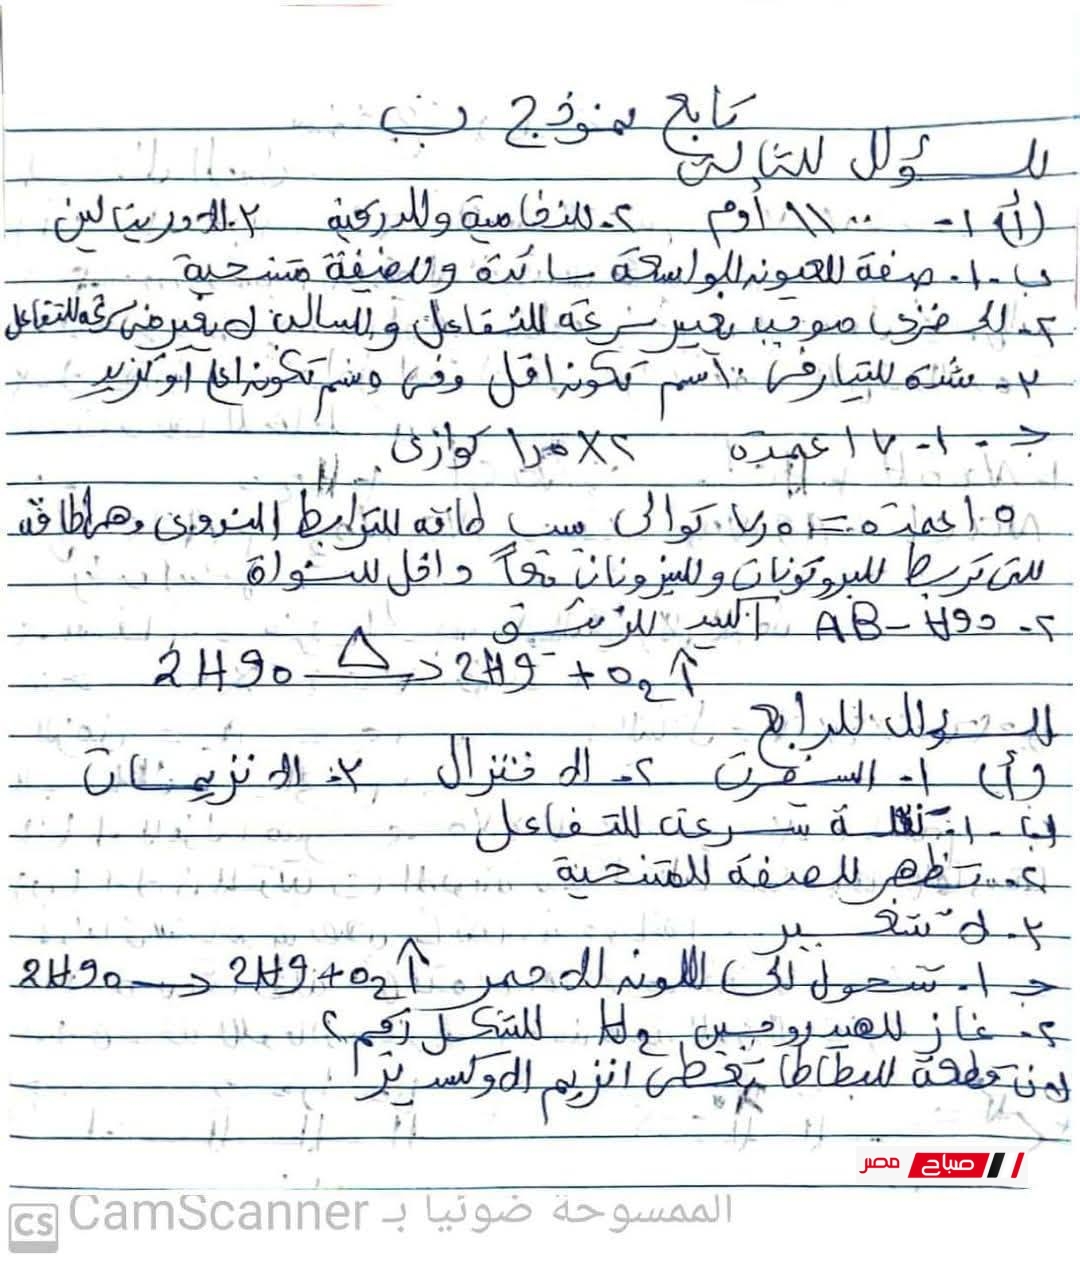 تابع نموذج ب
السؤال الثالث
(أ) ١- ١١٠٠ أوم ٢- النخامية والدرقية ٣- الادرينالين
ب-١- صفة العيون الواسعة سائدة والضيقة متنحية
٢- الحفزى موجب يغير سرعة التفاعل والسالب لا يغير من سرعة التفاعل
٣- شدة التيار فى ١٠سم تكون اقل وفى ٥سم تكون اعلى أو تزيد
جـ - ١- ٧ اعمدة ٢×١٫٥ توازى
٥ اعمدة = ٧٫٥ توالى طاقه الترابط النووى وهى طاقه
التى تربط البروتونات والنيترونات معاً داخل النواة
٢- AB - Hgo اكسيد الزئبق
2Hgo →Δ 2Hg + O2↑
السؤال الرابع
(أ) ١- السيفرت ٢- الاختزال ٣- الانزيمات
(ب-١- سرعة التفاعل
٢- تظهر الصفة المتنحية
٣- لا تتغير
جـ ١- تتحول الى اللون الاحمر 2Hgo → 2Hg + O2↑
٢- غاز الهيدروجين H2 الشكل رقم ٢
لان قطعة البطاطا تعطى انزيم الاوكسيديز
صباح مصر
CS CamScanner الممسوحة ضوئيا بـ